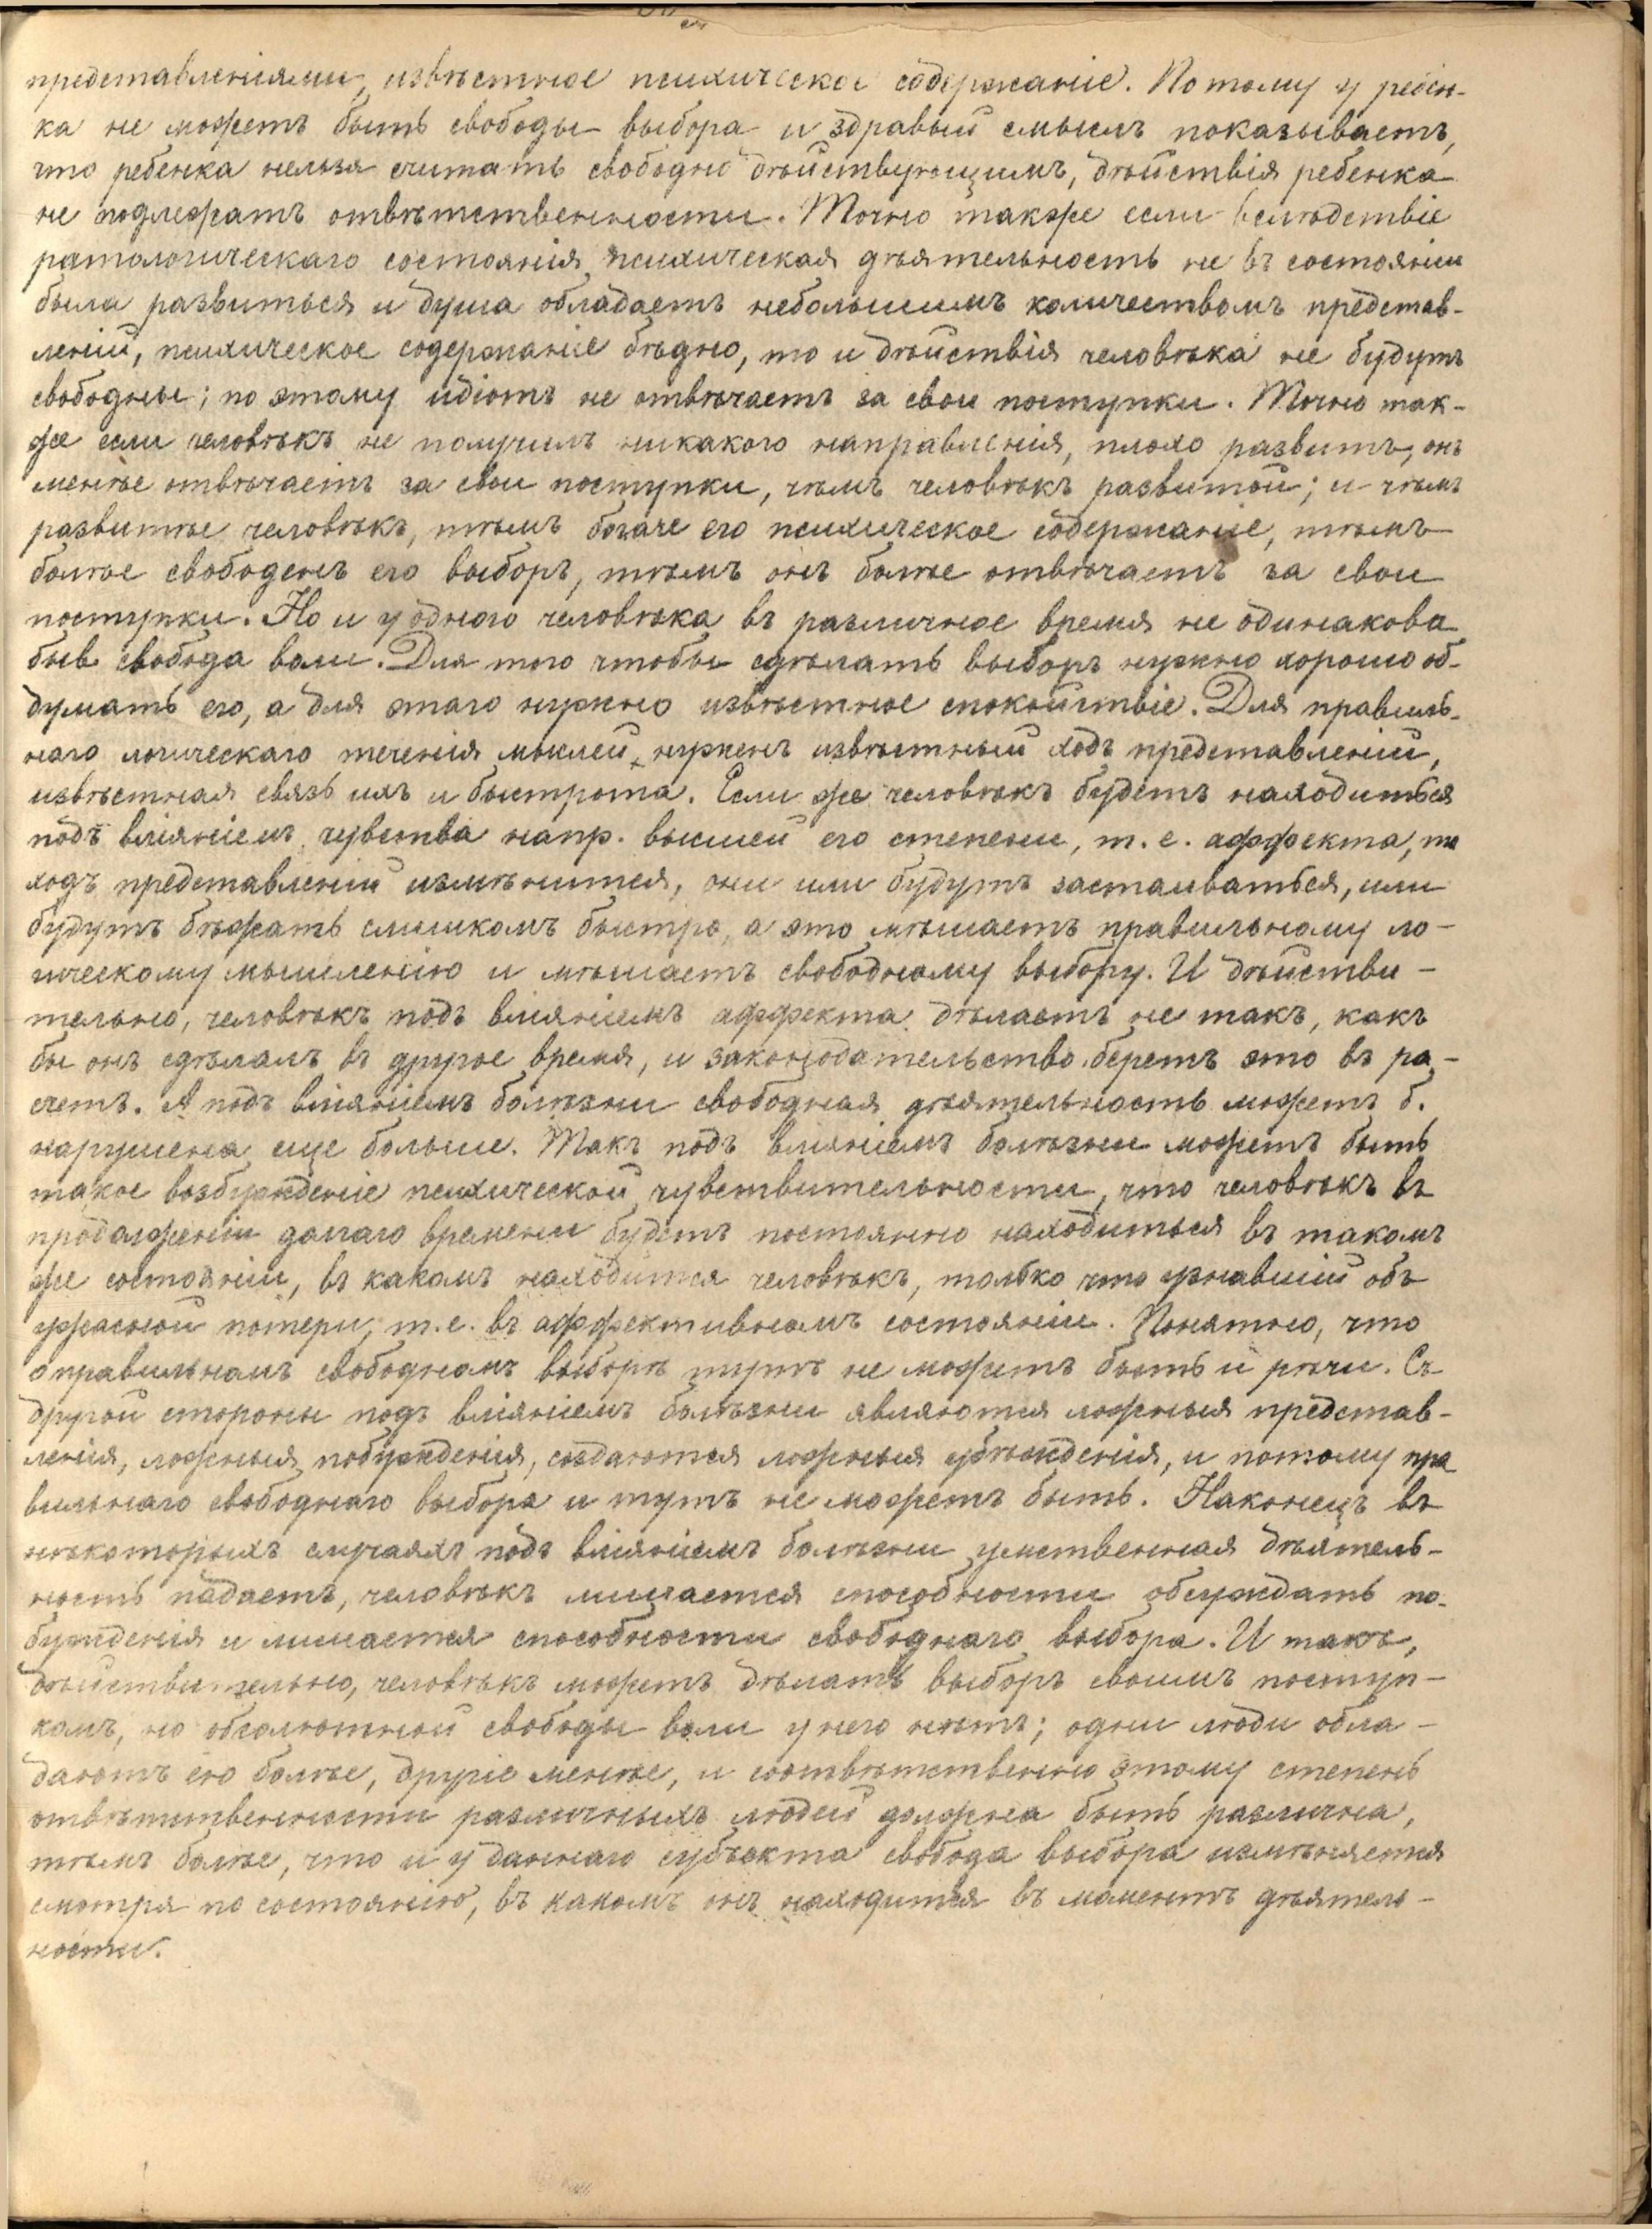 представленіями, извѣстное психическое содержаніе. Потому у ребен-
ка не можетъ быть свободы выбора и здравый смыслъ показываетъ,
что ребенка нельзя считать свободно дѣйствующимъ, дѣйствія ребенка
не подлежатъ отвѣтственности. Точно также если вслѣдствіе
патологическаго состоянія психическая дѣятельность не въ состояніи
была развиться и душа обладаетъ небольшимъ количествомъ представ-
леній, психическое содержаніе бѣдно, то и дѣйствія человѣка не будутъ
свободны; по этому идіотъ не отвѣчаетъ за свои поступки. Точно так-
же если человѣкъ не получилъ никакого направленія, плохо развитъ, онъ
менѣе отвѣчаетъ за свои поступки, чѣмъ человѣкъ развитой; и чѣмъ
развитѣе человѣкъ, тѣмъ богаче его психическое содержаніе, тѣмъ
болѣе свободенъ его выборъ, тѣмъ онъ болѣе отвѣчаетъ за свои
поступки. Но и у одного человѣка въ различное время не одинакова
свобода воли. Для того чтобы сдѣлать выборъ нужно хорошо об-
думать его, а для этаго нужно извѣстное спокойствіе. Для правиль-
наго логическаго теченія мыслей нуженъ извѣстный ходъ представленій,
извѣстная связь ихъ и быстрота. Если же человѣкъ будетъ находиться
подъ вліяніемъ чувства напр. высшей его степени, т. е. аффекта, то
ходъ представленій измѣнится, они или будутъ застаиваться, или
будутъ бѣжать слишкомъ быстро, а это мѣшаетъ правильному ло-
гическому мышленію и мѣшаетъ свободному выбору. И дѣйстви-
тельно, человѣкъ подъ вліяніемъ аффекта дѣлаетъ не такъ, какъ
бы онъ сдѣлалъ въ другое время, и законодательство беретъ это въ ра-
счетъ. А подъ вліяніемъ болѣзни свободная дѣятельность можетъ б.
нарушена еще больше. Такъ подъ вліяніемъ болѣзни можетъ быть
такое возбужденіе психической чувствительности, что человѣкъ въ
продолженіи долгаго времени будетъ постоянно находиться въ такомъ
же состояніи, въ какомъ находится человѣкъ, только что узнавшій объ
ужасной потери, т. е. въ аффективномъ состояніи. Понятно, что
о правильномъ свободномъ выборѣ тутъ не можетъ быть и рѣчи. Съ
другой стороны подъ вліяніемъ болѣзни являются ложныя представ-
ленія, ложныя побужденія, создаются ложныя убѣжденія, и потому пра
вильнаго свободнаго выбора и тутъ не можетъ быть. Наконецъ въ
нѣкоторыхъ случаяхъ подъ вліяніемъ болѣзни умственная дѣятель-
ность падаетъ, человѣкъ лишается способности обсуждать по-
бужденія и лишается способности свободнаго выбора. И такъ,
дѣйствительно, человѣкъ можетъ дѣлать выборъ своимъ поступ-
камъ, но обсолютной свободы воли у него нѣтъ; одни люди обла-
даютъ ею болѣе, другіе менѣе, и соотвѣтственно этому степень
отвѣтственности различныхъ людей должна быть различна,
тѣмъ болѣе, что и у даннаго субъекта свобода выбора измѣняется
смотря по состоянію, въ какомъ онъ находится въ моментъ дѣятель-
ности.